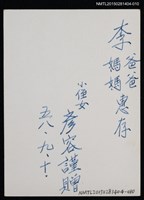 MLPT20150281404-010
李爸爸
媽媽惠存
小侄女
彥容謹贈
五八.九.十.